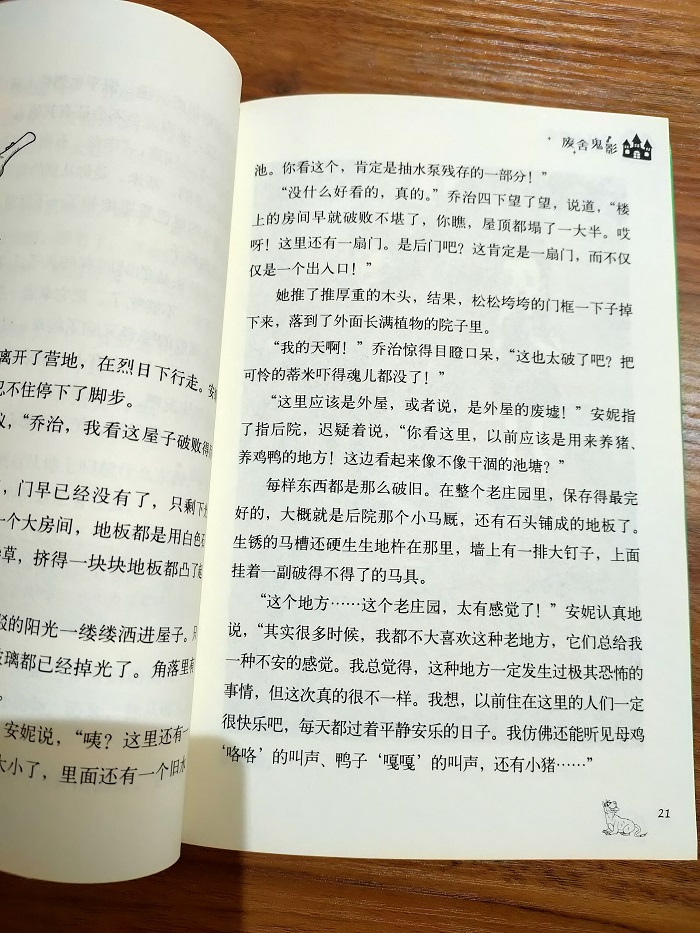 离开了营地，在烈日下行走。安
忍不住停下了脚步。
议，“乔治，我看这屋子破败得
，门早已经没有了，只剩下
一个大房间，地板都是用白色
草，挤得一块块地板都凸了
驳的阳光一缕缕洒进屋子。只
玻璃都已经掉光了。角落里有
。
安妮说，“咦？这里还有一
大小了，里面还有一个旧水
废舍鬼影
池。你看这个，肯定是抽水泵残存的一部分！”
“没什么好看的，真的。”乔治四下望了望，说道，“楼
上的房间早就破败不堪了，你瞧，屋顶都塌了一大半。哎
呀！这里还有一扇门。是后门吧？这肯定是一扇门，而不仅
仅是一个出入口！”
她推了推厚重的木头，结果，松松垮垮的门框一下子掉
下来，落到了外面长满植物的院子里。
“我的天啊！”乔治惊得目瞪口呆，“这也太破了吧？把
可怜的蒂米吓得魂儿都没了！”
“这里应该是外屋，或者说，是外屋的废墟！”安妮指
了指后院，迟疑着说，“你看这里，以前应该是用来养猪、
养鸡鸭的地方！这边看起来像不像干涸的池塘？”
每样东西都是那么破旧。在整个老庄园里，保存得最完
好的，大概就是后院那个小马厩，还有石头铺成的地板了。
生锈的马槽还硬生生地杵在那里，墙上有一排大钉子，上面
挂着一副破得不得了的马具。
“这个地方……这个老庄园，太有感觉了！”安妮认真地
说，“其实很多时候，我都不大喜欢这种老地方，它们总给我
一种不安的感觉。我总觉得，这种地方一定发生过极其恐怖的
事情，但这次真的很不一样。我想，以前住在这里的人们一定
很快乐吧，每天都过着平静安乐的日子。我仿佛还能听见母鸡
‘咯咯’的叫声、鸭子‘嘎嘎’的叫声，还有小猪……”
21